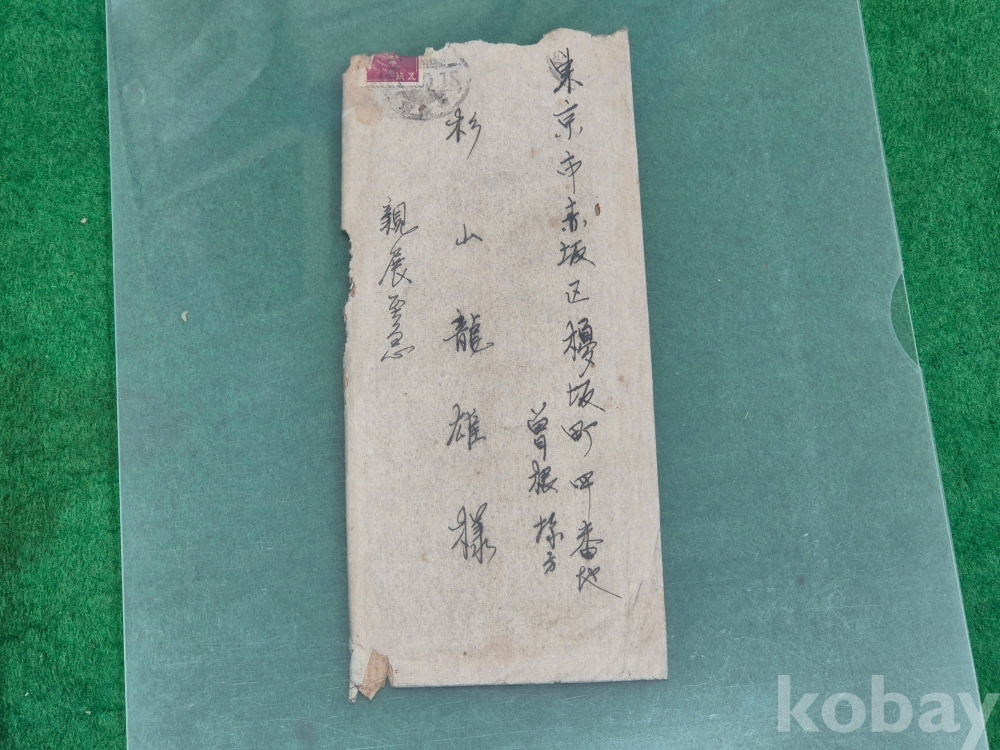 東京市赤坂区榎坂町四番地
曽根様方
杉山龍雄様
親展至急
kobay